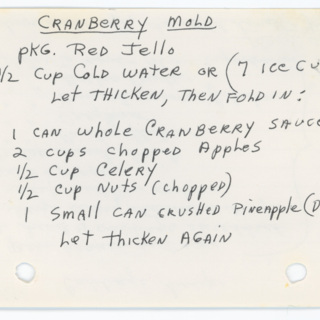 CRANBERRY MOLD
PKG. RED Jello
1/2 CUP COLD WATER OR (7 ICE CU
LET THICKEN, THEN FOLD IN:
1 CAN WHOLE CRANBERRY SAUCE
2 CUPS CHOPPED APPLES
1/2 CUP CELERY
1/2 CUP NUTS (CHOPPED)
1 SMALL CAN CRUSHED PINEAPPLE (D
LET THICKEN AGAIN